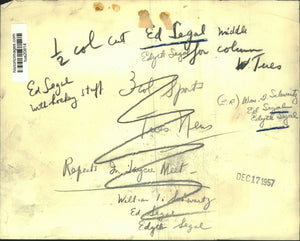 1/2 col cut Ed Segal middle
Edyth Segal for column
Tues
Ed Segal
with hockey stuff
3 col Sports
(L-R) Wm. I. Schwartz
Ed Segal
Edyth Segal
Tues News
Repeats In Jaycee Meet -
William I. Schwartz
Ed Segal
Edyth Segal
DEC 17 1957